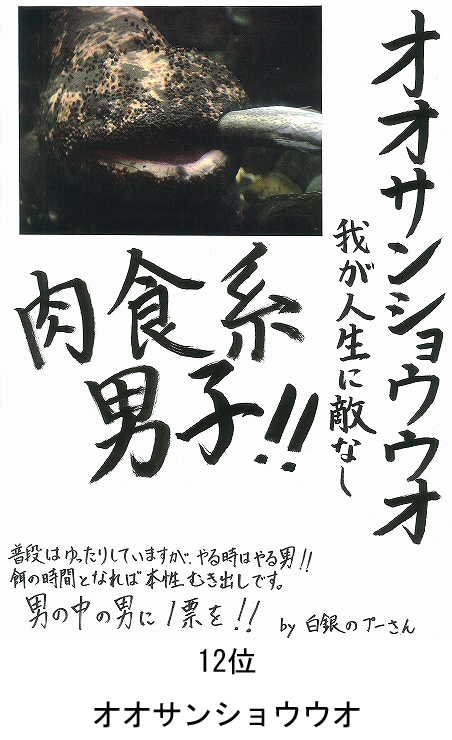 オオサンショウウオ
我が人生に敵なし
肉食系
男子!!
普段はゆったりしていますが、やる時はやる男!!
餌の時間となれば本性むき出しです。
男の中の男に1票を!!
by 白銀のプーさん
12位
オオサンショウウオ